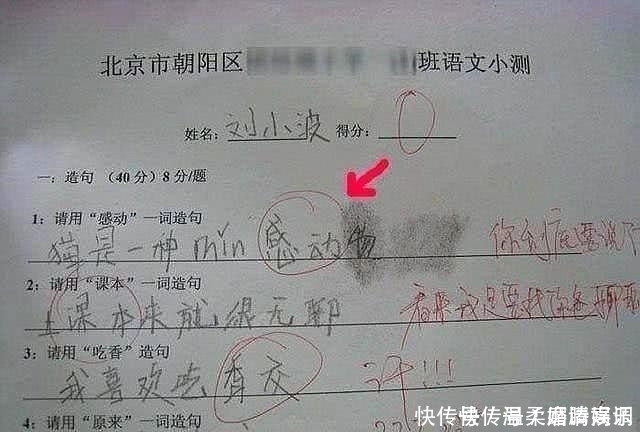 北京市朝阳区 班语文小测
姓名: 刘小波 得分: 0
一: 造句 (40分) 8分/题
1: 请用“感动”一词造句
猫是一种min感动物
你到底要说
2: 请用“课本”一词造句
上课本来就很无聊
看来我是要找你爸聊聊
3: 请用“吃香”造句
我喜欢吃香交
汗!!!
4: 请用“原来”一词造句
快传